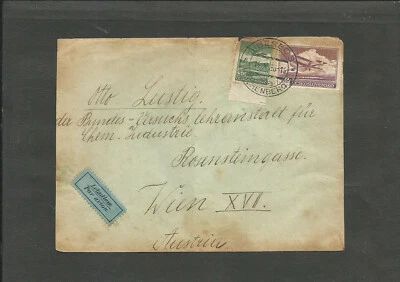 Otto Lustig.
der Bundes-Versuchs, Lehranstalt für
Chem. Industrie
Rosensteingasse.
Wien XVII.
Austria
Letecky
Par avion